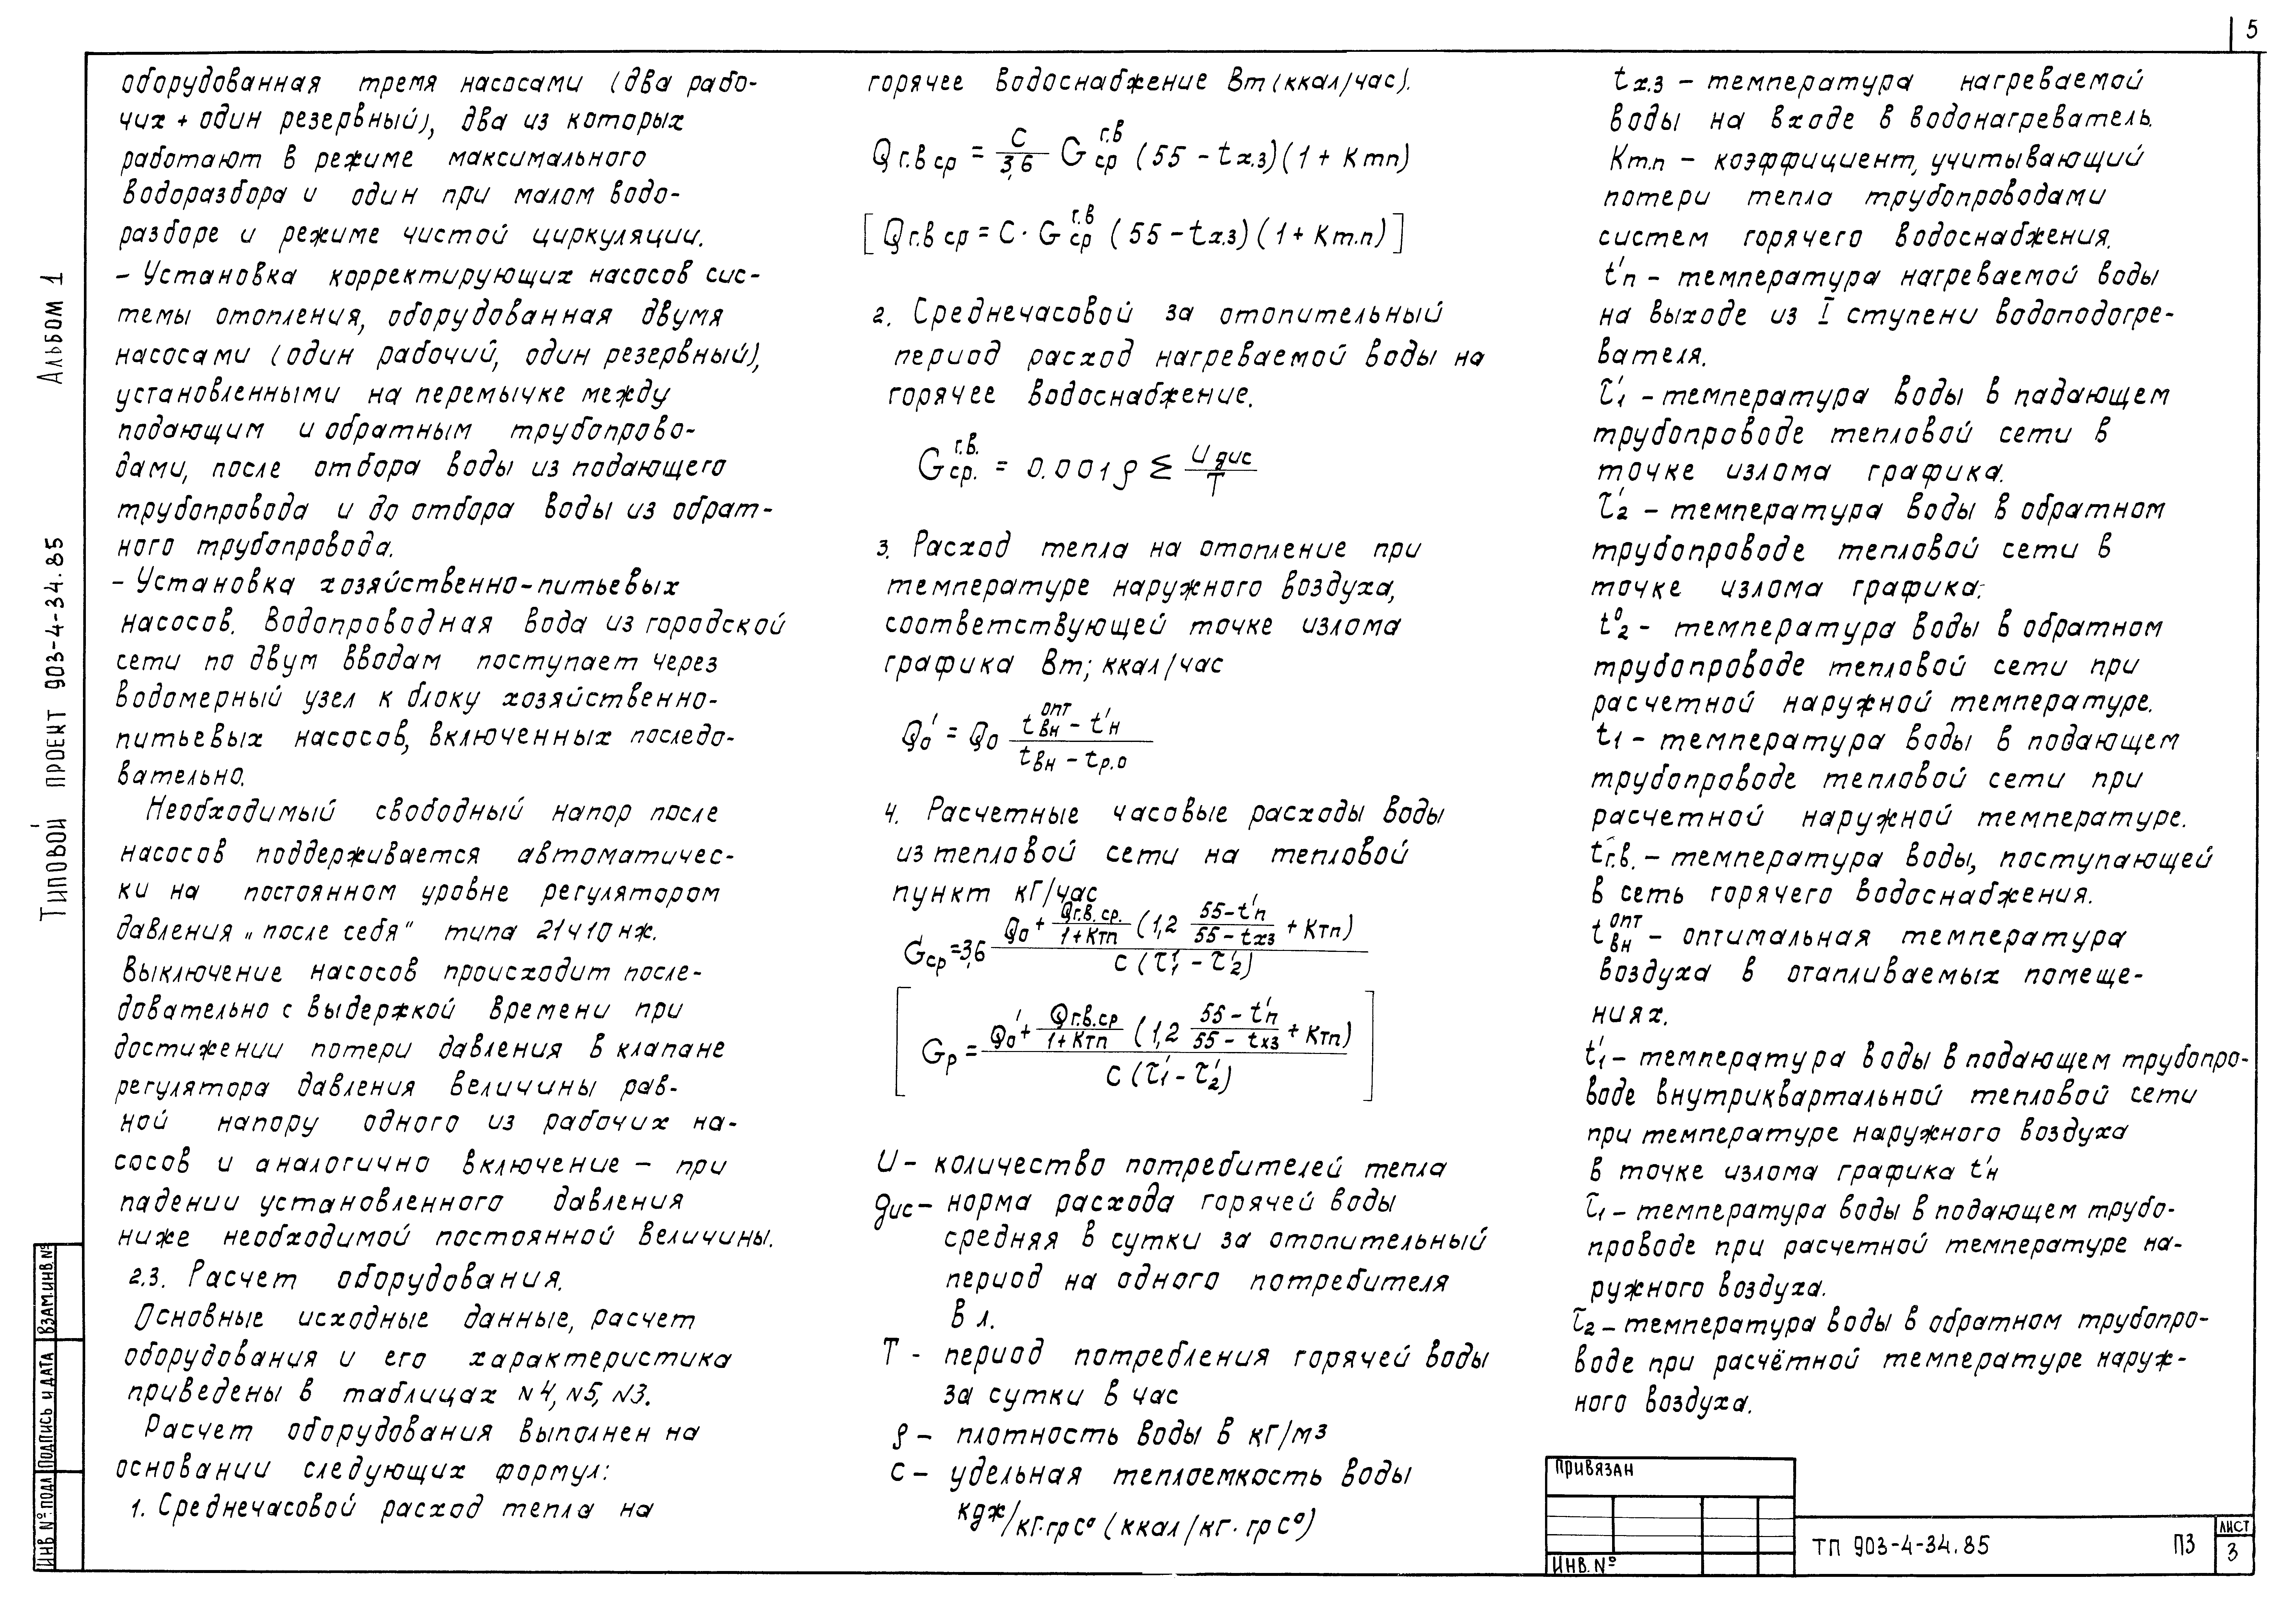 5
оборудованная тремя насосами (два рабо-
чих + один резервный), два из которых
работают в режиме максимального
водоразбора и один при малом водо-
разборе и режиме чистой циркуляции.
– Установка корректирующих насосов сис-
темы отопления, оборудованная двумя
насосами (один рабочий, один резервный),
установленными на перемычке между
подающим и обратным трубопрово-
дами, после отбора воды из подающего
трубопровода и до отбора воды из обрат-
ного трубопровода.
– Установка хозяйственно-питьевых
насосов. Водопроводная вода из городской
сети по двум вводам поступает через
водомерный узел к блоку хозяйственно-
питьевых насосов, включенных последо-
вательно.
Необходимый свободный напор после
насосов поддерживается автоматичес-
ки на постоянном уровне регулятором
давления „после себя" типа 21ч10нж.
Выключение насосов происходит после-
довательно с выдержкой времени при
достижении потери давления в клапане
регулятора давления величины рав-
ной напору одного из рабочих на-
сосов и аналогично включение – при
падении установленного давления
ниже необходимой постоянной величины.
2.3. Расчет оборудования.
Основные исходные данные, расчет
оборудования и его характеристика
приведены в таблицах N4, N5, N3.
Расчет оборудования выполнен на
основании следующих формул:
1. Среднечасовой расход тепла на
горячее водоснабжение Вт (ккал/час).
Qг.в ср = C/3,6 G ср г.в (55 – tх.з)(1 + Kтп)
[Qг.в ср = C · G ср г.в (55 – tх.з)(1 + Kт.п)]
2. Среднечасовой за отопительный
период расход нагреваемой воды на
горячее водоснабжение.
G ср. г.в. = 0.001 ρ Σ U gис / T
3. Расход тепла на отопление при
температуре наружного воздуха,
соответствующей точке излома
графика Вт; ккал/час
Q'о = Qо (tвн опт – t'н) / (tвн – tр.о)
4. Расчетные часовые расходы воды
из тепловой сети на тепловой
пункт кГ/час
Gср = 3,6 (Q'о + Qг.в.ср. / (1+Kтп) (1,2 (55 – t'п) / (55 – tхз) + Kтп)) / (c (τ'1 – τ'2))
[Gр = (Q'о + Qг.в.ср / (1+Kтп) (1,2 (55 – t'п) / (55 – tхз) + Kтп)) / (c (τ'1 – τ'2))]
U – количество потребителей тепла
gис – норма расхода горячей воды
средняя в сутки за отопительный
период на одного потребителя
в л.
T – период потребления горячей воды
за сутки в час
ρ – плотность воды в кГ/м3
c – удельная теплоемкость воды
кдж/кг·гр с° (ккал/кг·гр с°)
tх.з – температура нагреваемой
воды на входе в водонагреватель.
Kт.п – коэффициент, учитывающий
потери тепла трубопроводами
систем горячего водоснабжения.
t'п – температура нагреваемой воды
на выходе из I ступени водоподогре-
вателя.
τ'1 – температура воды в падающем
трубопроводе тепловой сети в
точке излома графика.
τ'2 – температура воды в обратном
трубопроводе тепловой сети в
точке излома графика;
t°2 – температура воды в обратном
трубопроводе тепловой сети при
расчетной наружной температуре.
t1 – температура воды в подающем
трубопроводе тепловой сети при
расчетной наружной температуре.
tг.в. – температура воды, поступающей
в сеть горячего водоснабжения.
t вн опт – оптимальная температура
воздуха в отапливаемых помеще-
ниях.
t'1 – температура воды в подающем трубопро-
воде внутриквартальной тепловой сети
при температуре наружного воздуха
в точке излома графика t'н
τ1 – температура воды в подающем трубо-
проводе при расчетной температуре на-
ружного воздуха.
τ2 – температура воды в обратном трубопро-
воде при расчётной температуре наруж-
ного воздуха.
Альбом 1
Типовой проект 903-4-34.85
Взам.инв.№
Подпись и дата
Инв №подл
Привязан
Инв. №
ТП 903-4-34.85
ПЗ
Лист
3